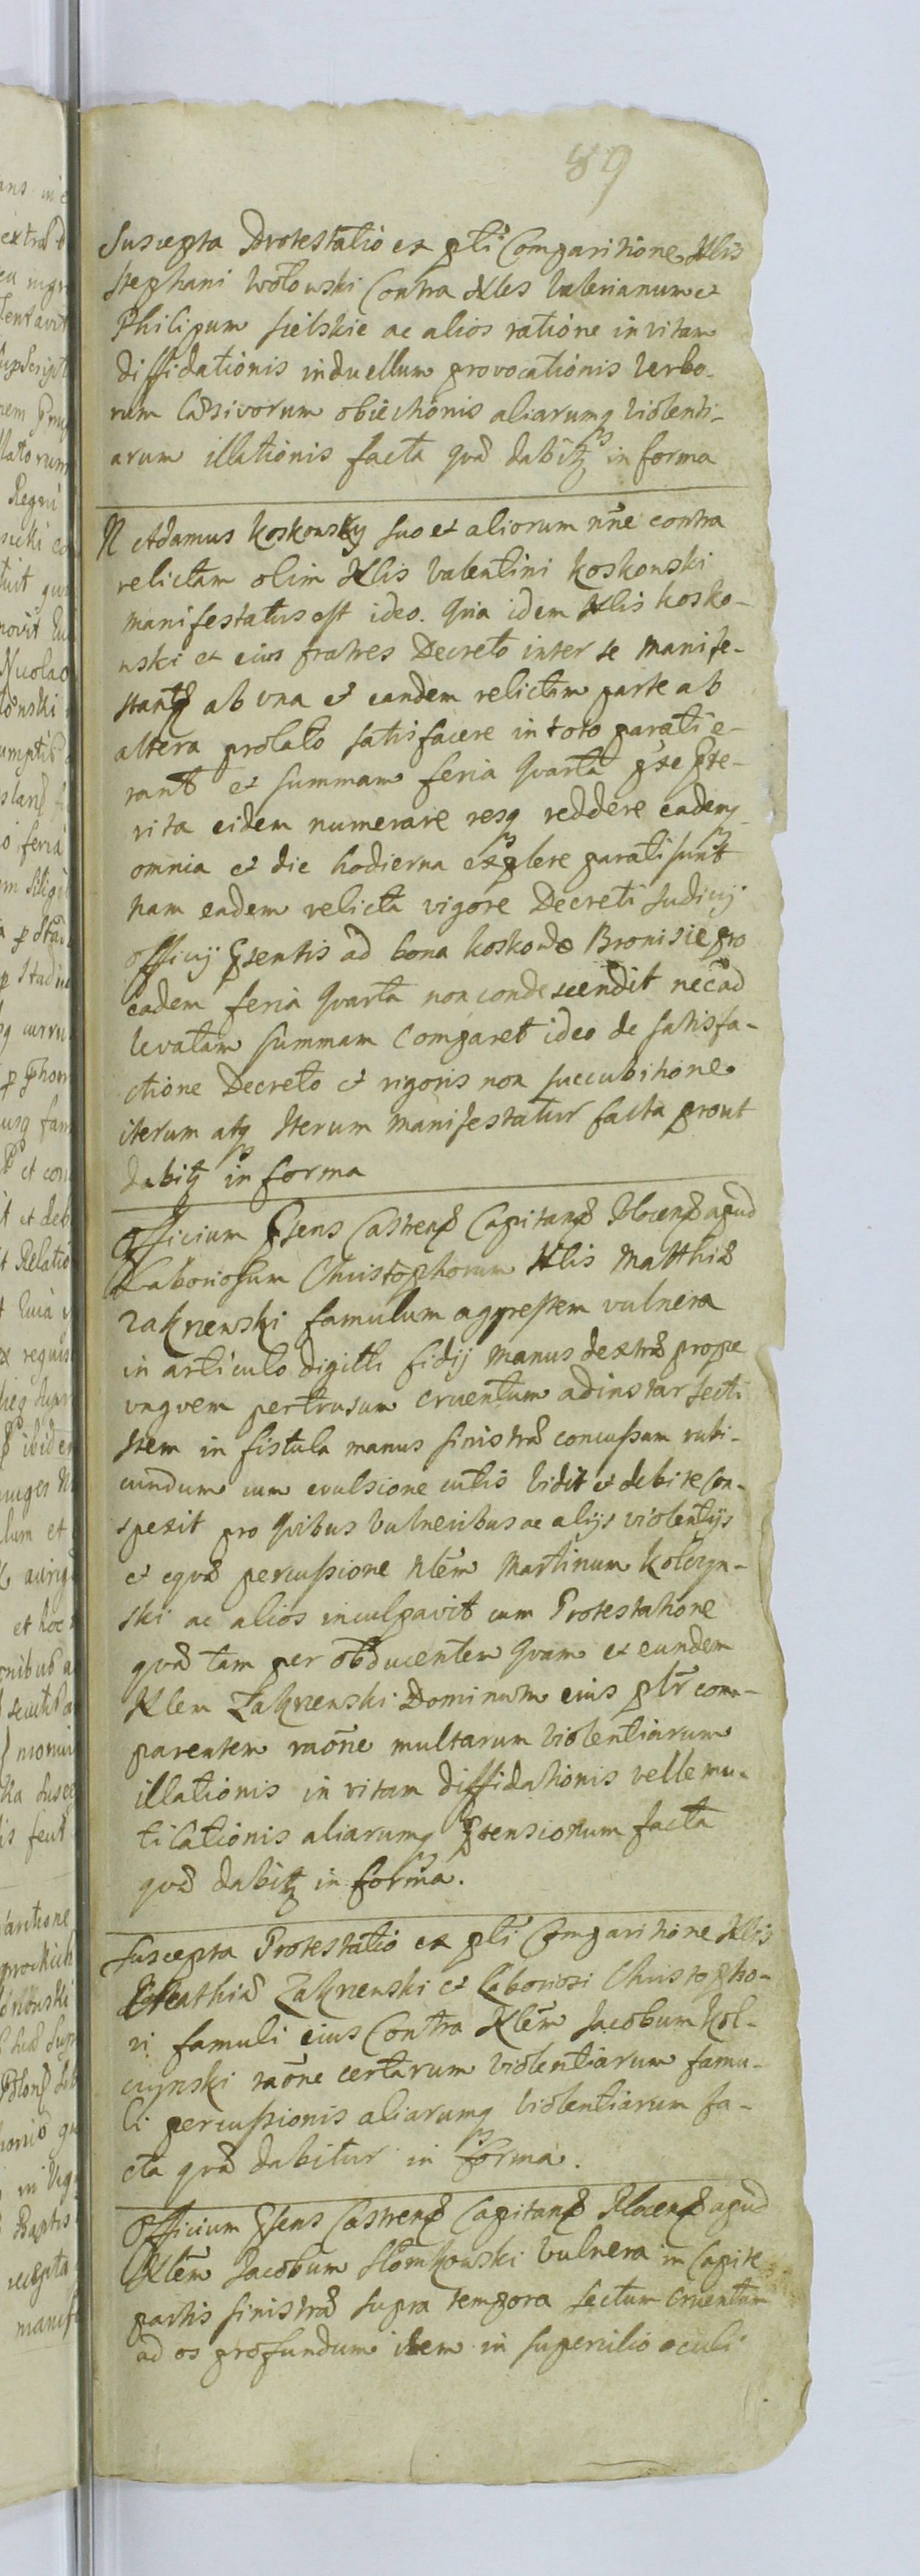 89
Suscepta Protestatio ex pľti Comparitione Nlis
Stephani Wołowski Contra Nles Valerianum et
Philipum Sielskie ac alios ratione in vitam
diffidationis in duellum provocationis verbo-
rum læsivorum obiectionis aliarumq violenti-
arum illationis facta quæ dabit in forma
N Adamus Koskowsky suo et aliorum nñe contra
relictam olim Nlis Valentini Koskowski
manifestatus est ideo. Quia idem Nlis Kosko-
wski et eius fratres Decreto inter se manife-
stantes ab una et eandem relictam parte ab
altera prolato satisfacere in toto parati e-
rant et summam feria quarta pxe præte-
rita eidem numerare resq reddere eademq
omnia et die hodierna explere parati sunt
nam eadem relicta vigore Decreti Judicij
officij Psentis ad bona Koskowo Bronisie pro
eadem feria quarta non condescendit nec ad
levatam summam Comparet ideo de satisfa-
ctione Decreto et rigoris non succubitione
iterum atq Iterum manifestatur facta prout
dabit in forma
Officium Psens Castren Capitan Plocen apud
Laboriosum Christophorum Nlis Matthiæ
Zakrzewski famulum agrestem vulnera
in articulo digitti fidij manus dextræ prope
ungvem pertrusum cruentum ad instar secti
Item in fistula manus sinistræ concussam rubi-
cundum cum evulsione cutis Vidit et debite Con-
spexit pro quibus vulneribus ac alijs violentijs
et equæ percussione Nlem Martinum Kolczyn-
ski ac alios inculpavit cum Protestatione
quæ tam per obducentem quam et eundem
Nlem Zakrzewski Dominum eius pltr com-
parentem raõne multarum violentiarum
illationis in vitam diffidationis velle mu-
tilationis aliarumq Ptensionum facta
quæ dabit in forma.
Suscepta Protestatio ex plti Comparitione Nlis
Mathiæ Zakrzewski et Laboriosi Christopho-
ri famuli eius Contra Nlem Jacobum Kol-
czynski raõne certarum violentiarum famu-
li percussionis aliarumq violentiarum fa-
cta quæ dabitur in forma.
Officium Psens Castren Capitan Plocen apud
Nlem Jacobum Słomkowski Vulnera in Capite
partis sinistræ supra tempora sectum cruentum
ad os profundum item in supercilio oculi